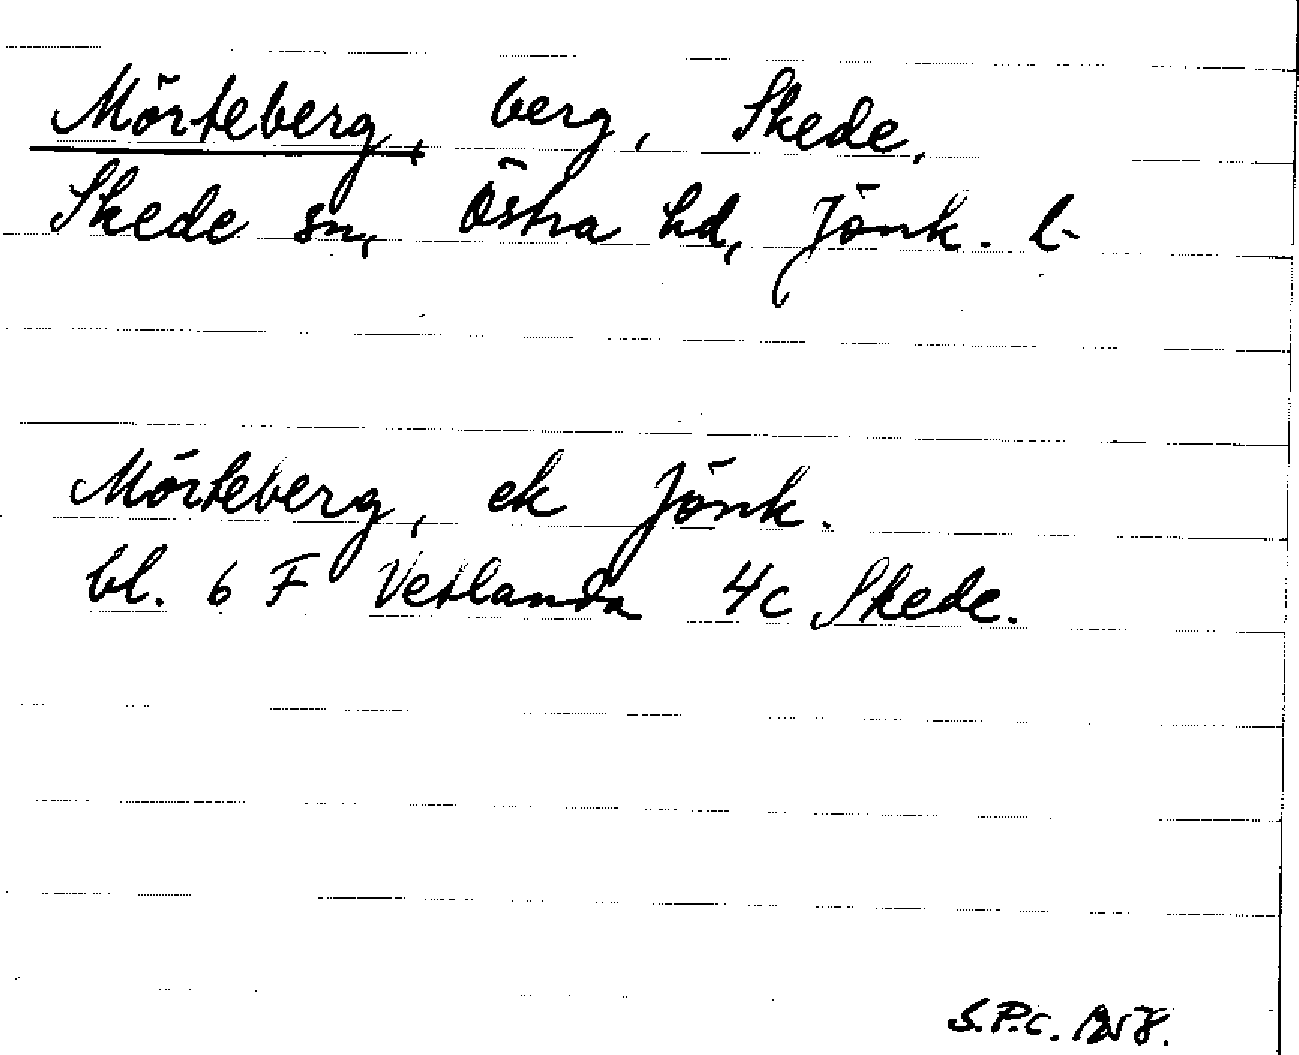 Mörteberg, berg, Skede,
Skede sn, Östra hd, Jönk. l.
Mörteberg, ek Jönk.
bl. 6 F Vetlanda 4c Skede.
S.P.C. 1958.